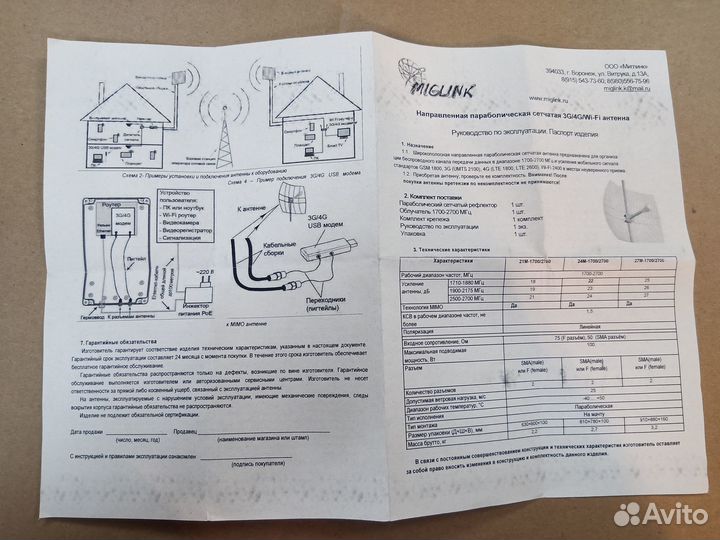 Схема 2- Примеры установки и подключения антенны к оборудованию
Схема 4 – Пример подключения 3G/4G USB модема
Базовая станция
Smart TV
Роутер
3G/4G модем
Пигтейл
Гермоввод
К разъемам антенны
Устройство пользователя:
- ПК или ноутбук
- Wi-Fi роутер
- Видеокамера
- Видеорегистратор
- Сигнализация
~220 В
Инжектор питания PoE
К антенне
3G/4G USB модем
Кабельные сборки
Переходники (пигтейлы)
к MIMO антенне
7. Гарантийные обязательства
Изготовитель гарантирует соответствие изделия техническим характеристикам, указанным в настоящем документе.
Гарантийный срок эксплуатации составляет 24 месяца с момента покупки. В течение этого срока изготовитель обеспечивает
бесплатное гарантийное обслуживание.
Гарантийные обязательства распространяются только на дефекты, возникшие по вине изготовителя. Гарантийное
обслуживание выполняется изготовителем или авторизованными сервисными центрами. Изготовитель не несет
ответственности за прямой либо косвенный ущерб, связанный с эксплуатацией антенны.
На антенны, эксплуатируемые с нарушением условий эксплуатации, имеющие механические повреждения, следы
вскрытия корпуса гарантийные обязательства не распространяются.
Изделие не подлежит обязательной сертификации.
Дата продажи Продавец
(число, месяц, год) (наименование магазина или штамп)
С инструкцией и правилами эксплуатации ознакомлен
(подпись покупателя)
MIGLINK
ООО «Миглинк»
394033, г. Воронеж, ул. Витрука, д.13А,
8(915) 543-73-60; 8(960)556-75-96
miglink.k@mail.ru
www.miglink.ru
Направленная параболическая сетчатая 3G/4G/Wi-Fi антенна
Руководство по эксплуатации. Паспорт изделия
1. Назначение
1.1. Широкополосная направленная параболическая сетчатая антенна предназначена для организа
ции беспроводного канала передачи данных в диапазоне 1700-2700 МГц и усиления мобильного сигнала
стандартов GSM 1800, 3G (UMTS 2100), 4G (LTE 1800, LTE 2600), Wi-Fi 2400 в местах неуверенного приема.
1.2. Приобретая антенну, проверьте ее комплектность. Внимание! После
покупки антенны претензии по некомплектности не принимаются!
2. Комплект поставки
Параболический сетчатый рефлектор 1 шт.
Облучатель 1700-2700 МГц 1 шт.
Комплект крепежа 1 комплект
Руководство по эксплуатации 1 экз.
Упаковка 1 шт.
3. Технические характеристики
Характеристики 21М-1700/2700 24М-1700/2700 27М-1700/2700
Рабочий диапазон частот, МГц 1700-2700
Усиление антенны, дБ 1710-1880 МГц 18 22 25
1900-2175 МГц 19 23 26
2500-2700 МГц 21 24 27
Технология MIMO Да Да Да
КСВ в рабочем диапазоне частот, не более 1,5
Поляризация Линейная
Входное сопротивление, Ом 75 (F разъём), 50 (SMA разъём)
Максимальная подводимая мощность, Вт 100
Разъем SMA(male) или F (female) SMA(male) или F (female) SMA(male) или F (female)
Количество разъемов 2 2
Допустимая ветровая нагрузка, м/с 25
Диапазон рабочих температур, °С -40 ... +50
Тип исполнения Параболическая
Тип монтажа На мачту
Размер упаковки (Д×Ш×В), мм 630×600×100 810×780×100 910×880×160
Масса брутто, кг 2,2 2,7 3,2
В связи с постоянным совершенствованием конструкции и технических характеристик изготовитель оставляет
за собой право вносить изменения в конструкцию и комплектность данного изделия.
Avito